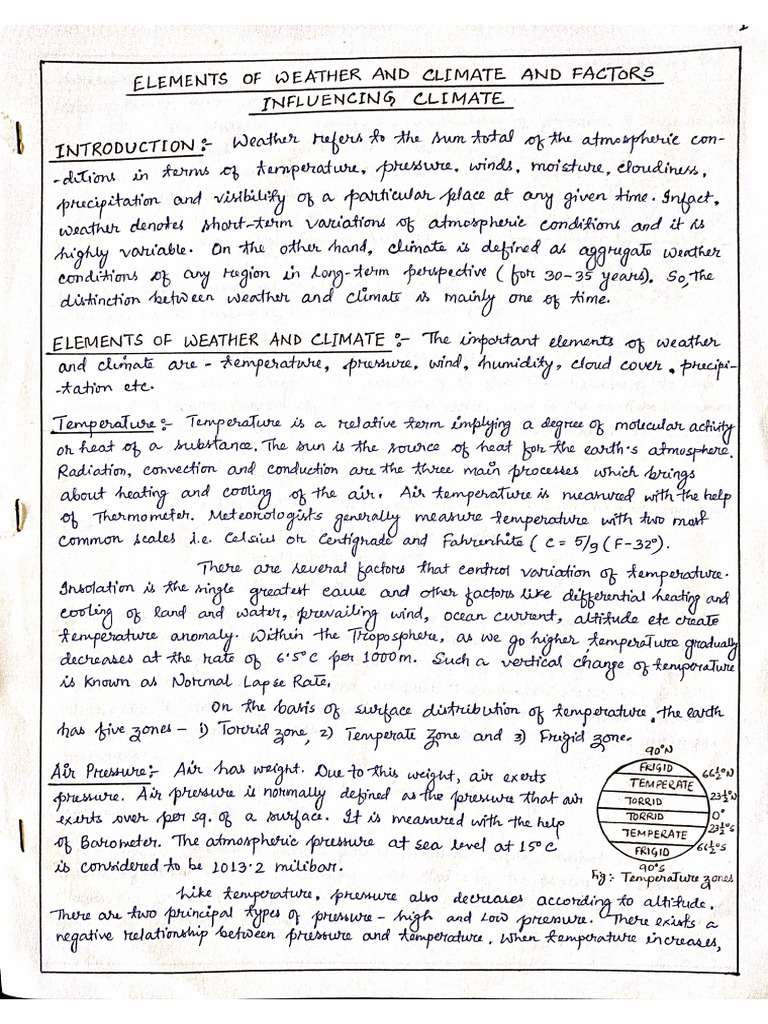 1
ELEMENTS OF WEATHER AND CLIMATE AND FACTORS
INFLUENCING CLIMATE
INTRODUCTION :- Weather refers to the sum total of the atmospheric con-
-ditions in terms of temperature, pressure, winds, moisture, cloudiness,
precipitation and visibility of a particular place at any given time. Infact,
weather denotes short-term variations of atmospheric conditions and it is
highly variable. On the other hand, climate is defined as aggregate weather
conditions of any region in long-term perspective (for 30-35 years). So, the
distinction between weather and climate is mainly one of time.
ELEMENTS OF WEATHER AND CLIMATE :- The important elements of weather
and climate are - temperature, pressure, wind, humidity, cloud cover, precipi-
-tation etc.
Temperature :- Temperature is a relative term implying a degree of molecular activity
or heat of a substance. The sun is the source of heat for the earth's atmosphere.
Radiation, convection and conduction are the three main processes which brings
about heating and cooling of the air. Air temperature is measured with the help
of Thermometer. Meteorologists generally measure temperature with two most
common scales i.e. Celsius or Centigrade and Fahrenhite (C = 5/9 (F-32°).
There are several factors that control variation of temperature.
Insolation is the single greatest cause and other factors like differential heating and
cooling of land and water, prevailing wind, ocean current, altitude etc create
temperature anomaly. Within the Troposphere, as we go higher temperature gradually
decreases at the rate of 6.5°C per 1000m. Such a vertical change of temperature
is known as Normal Lapse Rate.
On the basis of surface distribution of temperature, the earth
has five zones - 1) Torrid zone, 2) Temperate zone and 3) Frigid zone.
Air Pressure :- Air has weight. Due to this weight, air exerts
pressure. Air pressure is normally defined as the pressure that air
exerts over per sq. of a surface. It is measured with the help
of Barometer. The atmospheric pressure at sea level at 15°C
is considered to be 1013.2 milibar.
90°N
FRIGID
66½°N
TEMPERATE
23½°N
TORRID
0°
TORRID
23½°S
TEMPERATE
66½°S
FRIGID
90°S
Fig :- Temperature zones
Like temperature, pressure also decreases according to altitude.
There are two principal types of pressure - high and low pressure. There exists a
negative relationship between pressure and temperature. When temperature increases,